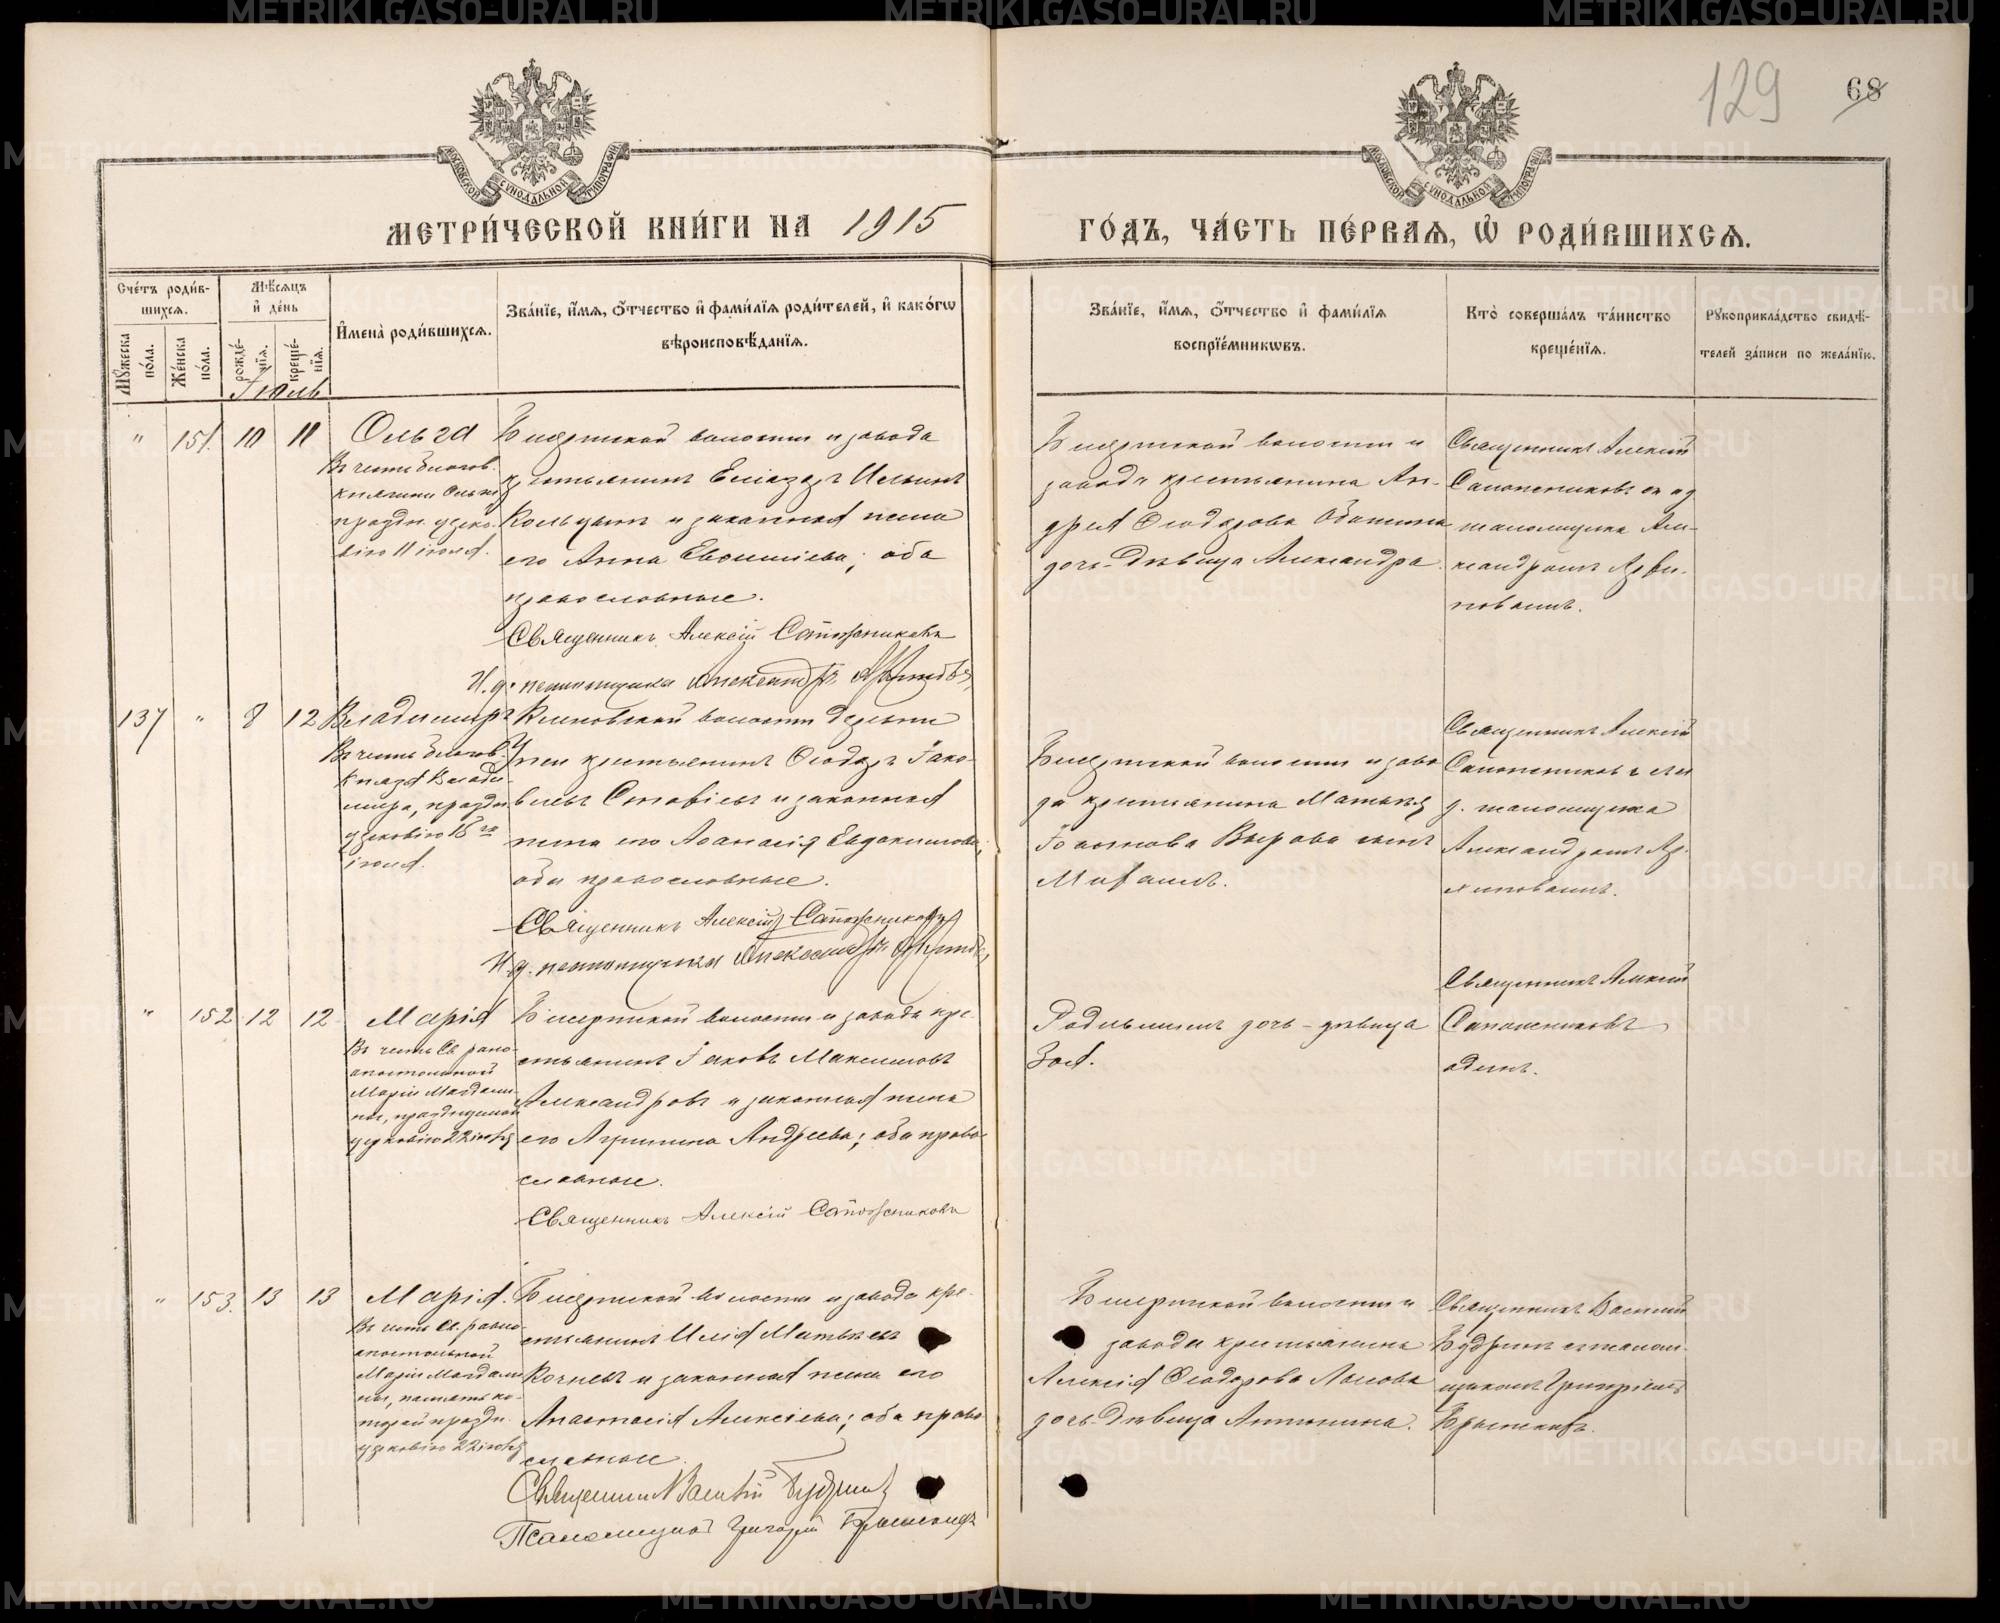 129
68
МЕТРИ́ЧЕСКОЙ КНИ́ГИ НА 1915
ГО́ДЪ, ЧА́СТЬ ПЕ́РВАЯ, Ѡ РОДИ́ВШИХСЯ.
Сче́тъ роди́в-
шихся.
Мꙋ́жеска по́ла.
Же́нска по́ла.
Мѣ́сяцъ
и҆ де́нь
рожде́-нїя.
креще́-нїя.
Июль
И҆мена̀ роди́вшихся.
Зва́нїе, и҆́мя, ѻ҆́тчество и҆ фами́лїя роди́телей, и҆ како́гѡ
вѣроисповѣ́данїя.
Зва́нїе, и҆́мя, ѻ҆́тчество и҆ фами́лїя
воспрїе́мникѡвъ.
Кто̀ соверша́лъ та́инство
креще́нїя.
Рꙋкоприкла́дство свидѣ́-
телей за́писи по жела́нїю.
" 151. 10 11
Ольга
Въ честь благов.
княгини Ольги
праздн. церко-
вію 11 іюля.
Бисертской волости и завода
крестьянинъ Еліазаръ Ильинъ
Кольцовъ и законная жена
его Анна Евфиміева; оба
православные.
Священникъ Алексій Сапожниковъ
И. д. псаломщика Александръ
Бисертской волости и
завода крестьянина Ан-
дрея Ѳеодорова Обатнина
дочь-дѣвица Александра.
Священникъ Алексій
Сапожниковъ съ и д
псаломщика Але-
ксандромъ
137 " 8 12
Владиміръ
Въ честь благов.
Князя Влади-
мира, праздн.
церковію 15го
іюля.
Кленовской волости деревни
крестьянинъ Ѳеодоръ Іако-
влевъ и законная
жена его Аѳанасія Евдокимова;
оба православные.
Священникъ Алексій Сапожниковъ
И. д. псаломщика Александръ
Бисертской волости и заво-
да крестьянина Матвѣя
Іоаннова Вырова сынъ
Михаилъ.
Священникъ Алексій
Сапожниковъ съ и
д. псаломщика
Александромъ
" 152 12 12
Марія
Въ честь Св. равно-
апостольной
Маріи Магдали-
ны, празднуемой
церковію 22 іюля
Бисертской волости и завода кре-
стьянинъ Іаковъ Максимовъ
Александровъ и законная жена
его Агрипина Андреева; оба право-
славные.
Священникъ Алексій Сапожниковъ
Родильницы дочь-дѣвица
Зоя.
Священникъ Алексій
Сапожниковъ
одинъ.
" 153. 13 13
Марія.
Въ честь Св. равно-
апостольной
Маріи Магдали-
ны, память ко-
торой праздн.
церковію 22 іюля
Бисертской волости и завода кре-
стьянинъ Илія Матвѣевъ
Кочневъ и законная жена его
Анастасія Алексіева; оба право-
славные.
Священникъ Василій Будринъ
Псаломщикъ Григорій
Бисертской волости и
завода крестьянина
Алексія Ѳеодорова
дочь-дѣвица Антонина.
Священникъ Василій
Будринъ съ псалом-
щикомъ Григоріемъ